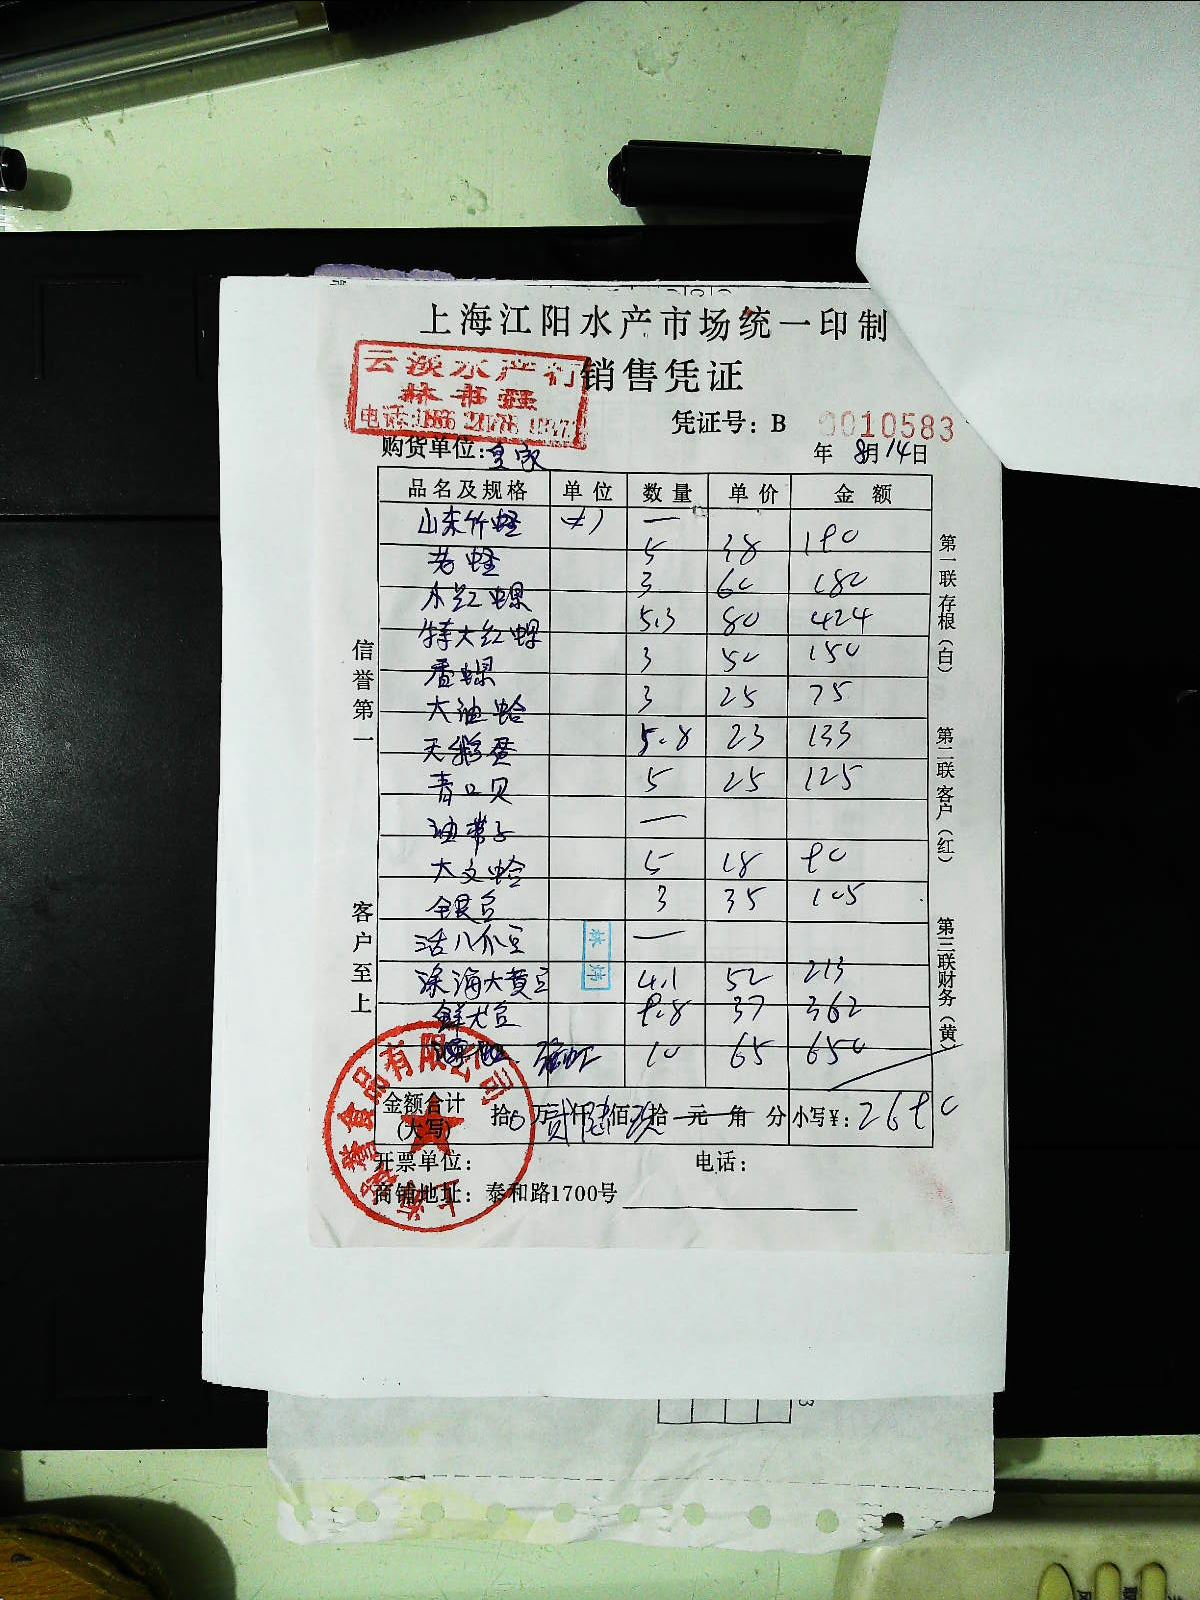 上海江阳水产市场统一印制
云淡水产行
销售凭证
林书强
电话:
凭证号: B 0010583
购货单位: 皇家
年 8月14日
品名及规格 单位 数量 单价 金额
山东竹蛏 斤 —
老蛏 5 38 190
小红螺 3 60 180
特大红螺 5.3 80 424
香螺 3 50 150
大油蛤 3 25 75
天鹅蛋 5.8 23 133
青口贝 5 25 125
油带子 —
大文蛤 5 18 90
银豆 3 35 105
活八爪豆 —
深海大黄豆 4.1 52 213
鲜尤豆 9.8 37 362
10 65 650
金额合计
(大写)
拾0万贰仟陆佰玖拾元角分 小写¥: 2690
开票单位: 电话:
商铺地址: 泰和路1700号
信誉第一
客户至上
第一联存根(白)
第二联客户(红)
第三联财务(黄)
食品有限公司